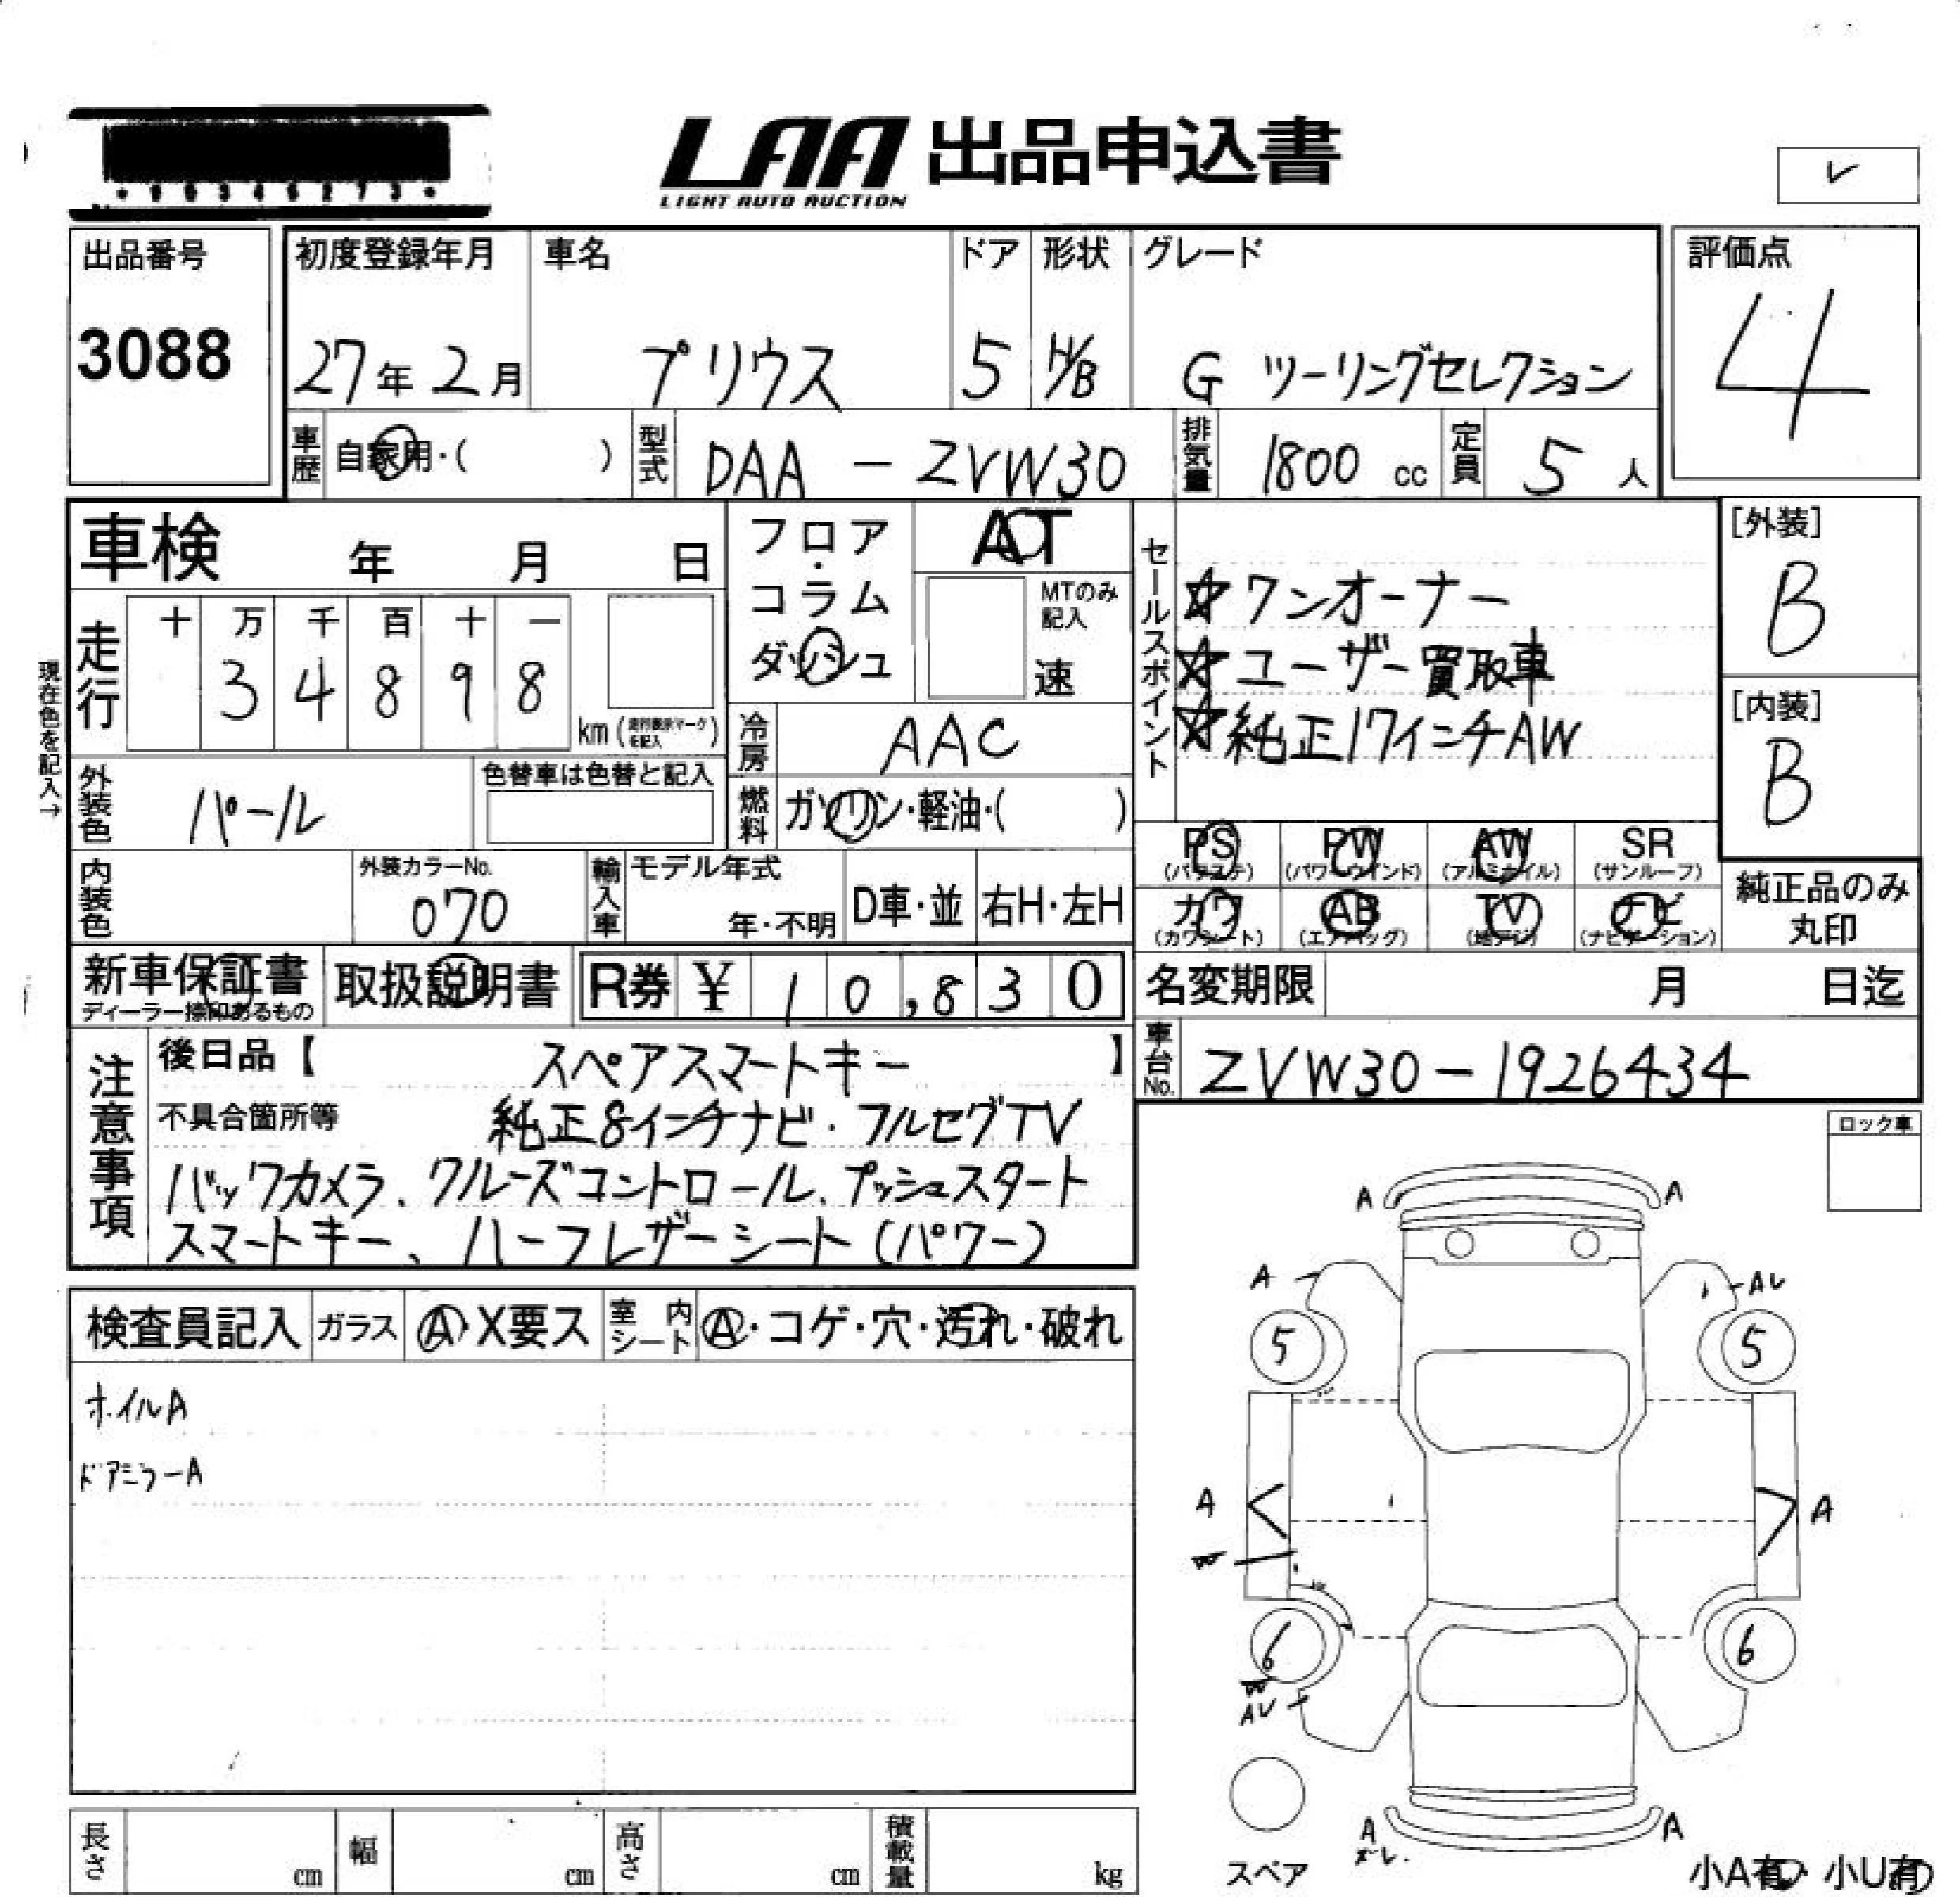 ・00346273・
LAA 出品申込書
LIGHT AUTO AUCTION
レ
出品番号
3088
初度登録年月
27年2月
車名
プリウス
ドア
5
形状
H/B
グレード
G ツーリングセレクション
評価点
4
車歴 自家用・( )
型式 DAA-ZVW30
排気量 1800 cc
定員 5 人
車検 年 月 日
走行
十 万 千 百 十 一
3 4 8 9 8
km(走行表示マークを記入)
現在色を記入→
フロア・
コラム
ダッシュ
AT
MTのみ
記入
速
冷房 AAC
燃料 ガソリン・軽油・( )
セールスポイント
☆ワンオーナー
☆ユーザー買取車
☆純正17インチAW
[外装]
B
[内装]
B
外装色 パール
色替車は色替と記入
内装色
外装カラーNo.
070
輸入車 モデル年式
年・不明
D車・並
右H・左H
PS
(パワステ)
PW
(パワーウインド)
AW
(アルミホイル)
SR
(サンルーフ)
カワ
(カワシート)
AB
(エアバッグ)
TV
(地デジ)
ナビ
(ナビゲーション)
純正品のみ
丸印
新車保証書
ディーラー捺印あるもの
取扱説明書
R券 ¥ 10,830
名変期限 月 日迄
車台No. ZVW30-1926434
注意事項
後日品【 スペアスマートキー 】
不具合箇所等 純正8インチナビ・フルセグTV
バックカメラ、クルーズコントロール、プッシュスタート
スマートキー、ハーフレザーシート(パワー)
ロック車
検査員記入
ガラス A・X要ス
室内シート A・コゲ・穴・汚れ・破れ
ホイルA
ドアミラーA
A A
A AU
5 5
A A
W
6 6
W
AU
A A
ズレ.
スペア
小A有・小U有
長さ cm
幅 cm
高さ cm
積載量 kg